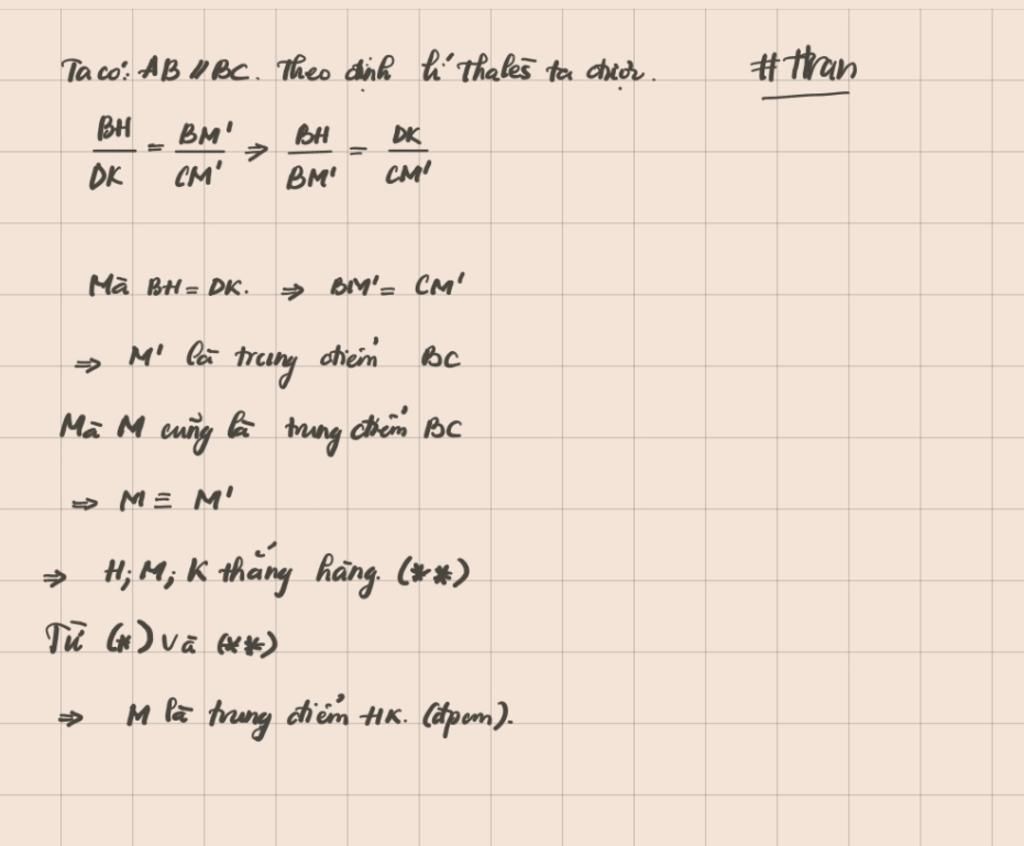 Ta có: AB // BC. Theo định lí Thales ta được. #Hran
BH/DK = BM'/CM' ⇒ BH/BM' = DK/CM'
Mà BH = DK. ⇒ BM' = CM'
⇒ M' là trung điểm BC
Mà M cũng là trung điểm BC
⇒ M ≡ M'
⇒ H; M; K thẳng hàng. (**)
Từ (*) và (**)
⇒ M là trung điểm HK. (đpcm).